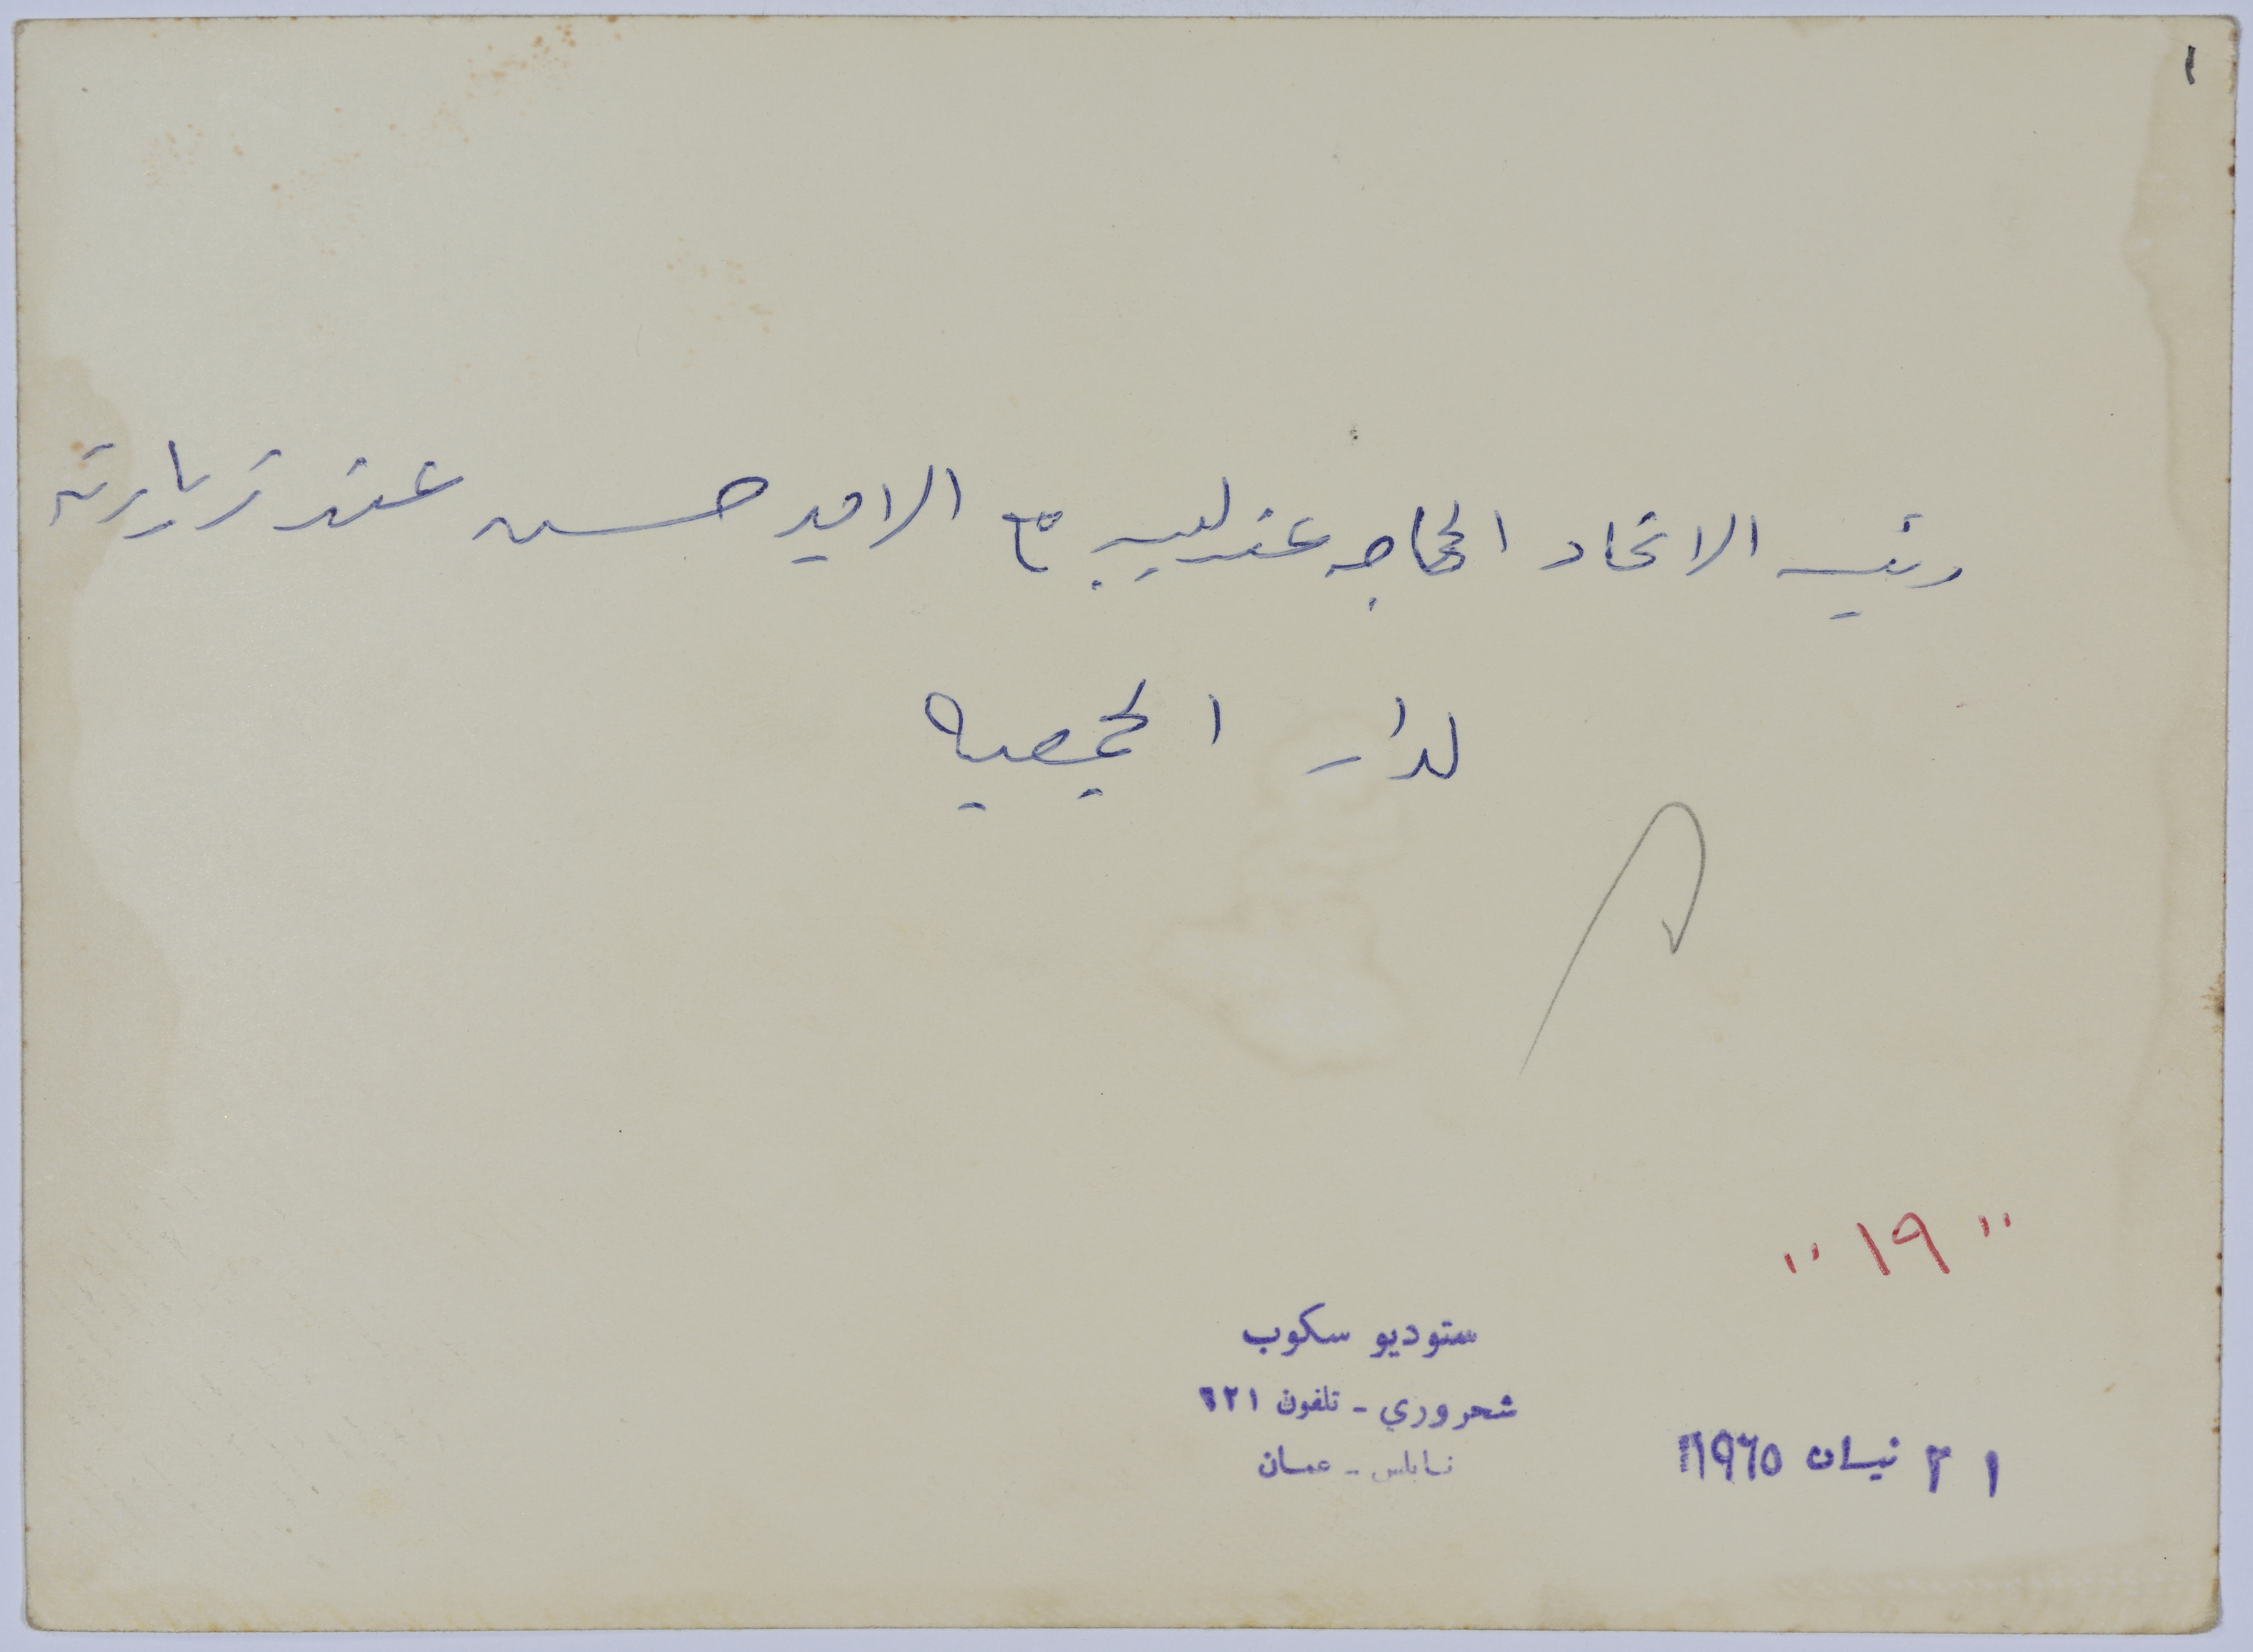 ١
رئيسه الاتحاد الحاجه عندليب مع الامير حسن عند زيارته
لدار الجمعيه
"١٩"
ستوديو سكوب
شحروري - تلفون ٦٢١
نابلس - عمان
٢١ نيسان ١٩٦٥